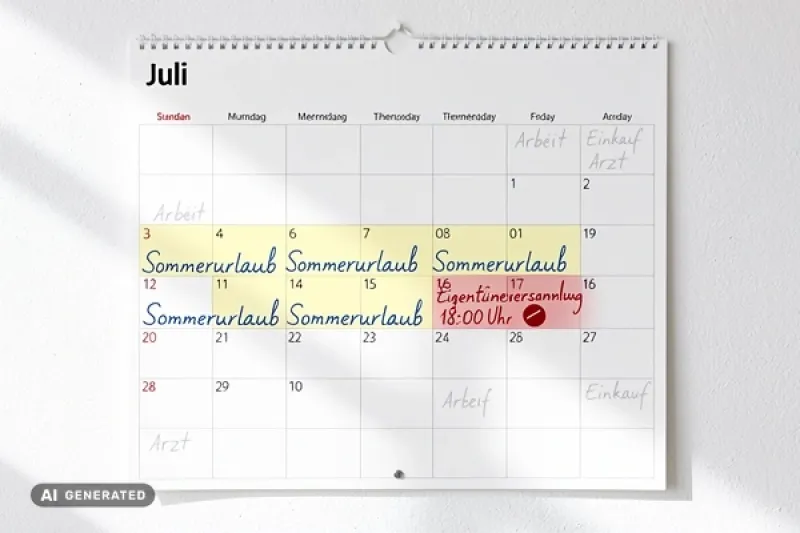 Juli
Sundan Mumdag Mermsdang Thersnoday Tlemersday Fnday Anday
Arbeit Einkauf
Arzt
1 2
Arbeit
3 4 6 7 08 01 19
Sommerurlaub Sommerurlaub Sommerurlaub
12 11 14 15 16 17 16
Eigentüneversannlug
Sommerurlaub Sommerurlaub 18:00 Uhr
20 21 22 23 24 26 27
28 29 10
Arbeif Einkauf
Arzt
AI GENERATED